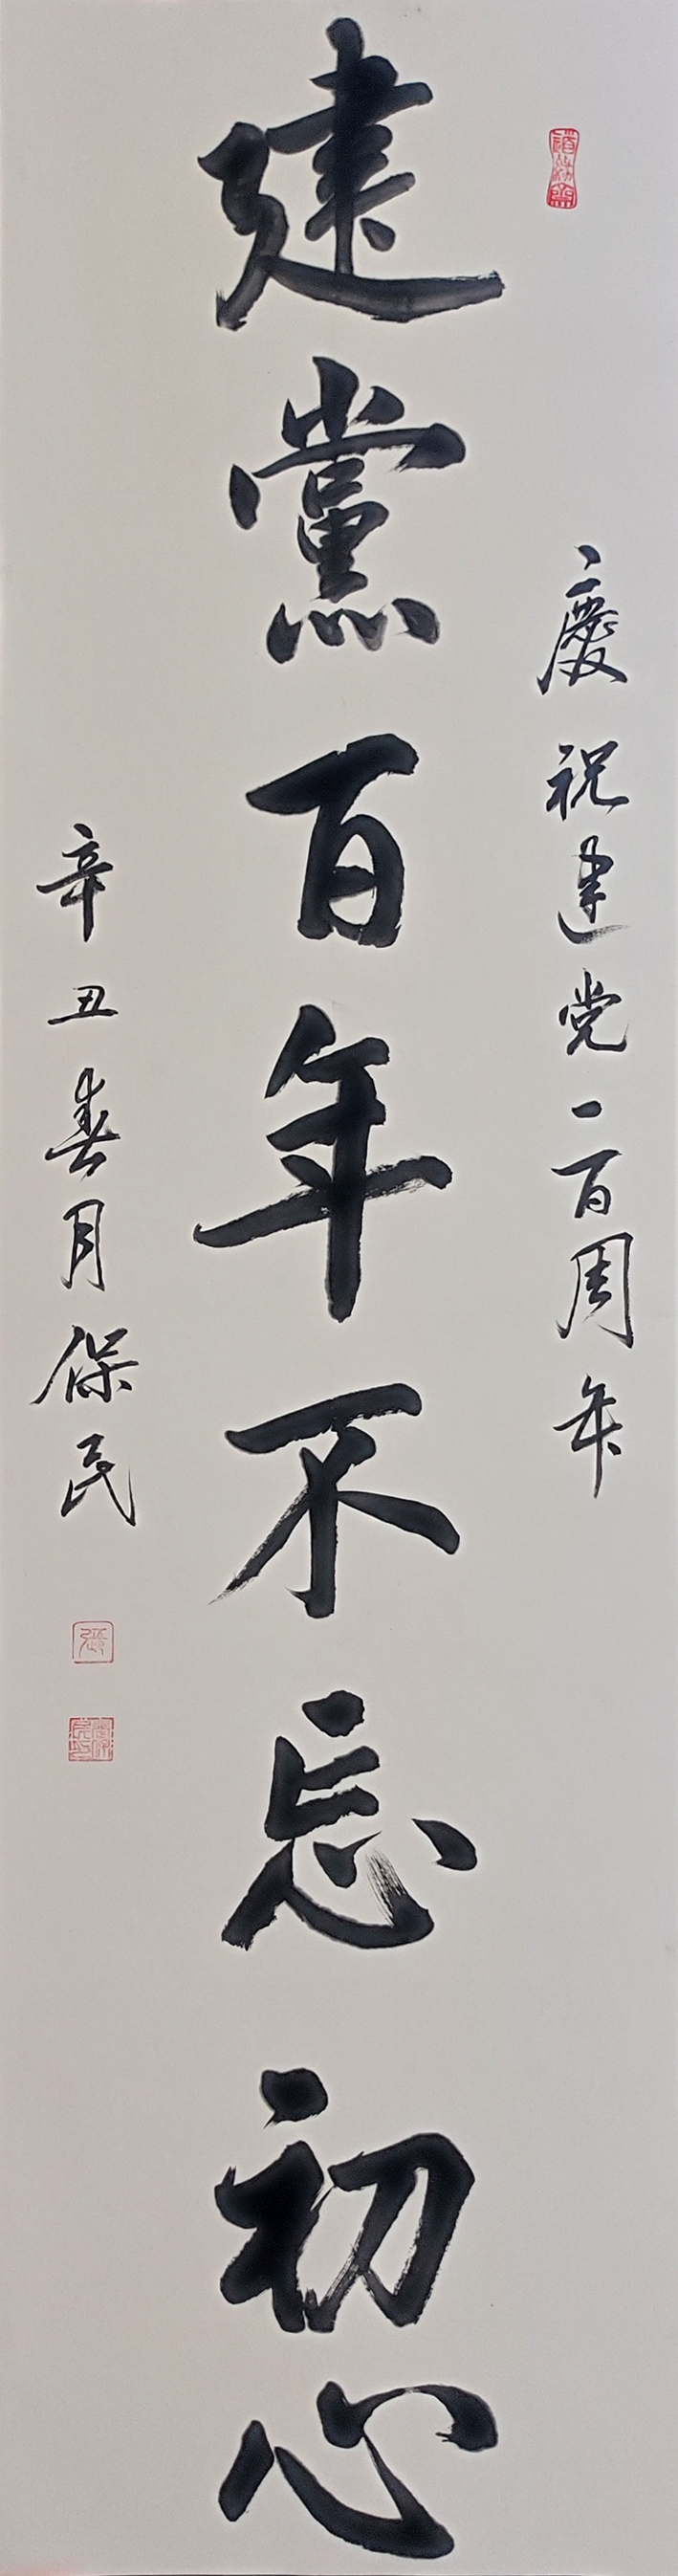 慶祝建党一百周年
建黨百年不忘初心
辛丑春月保民
張